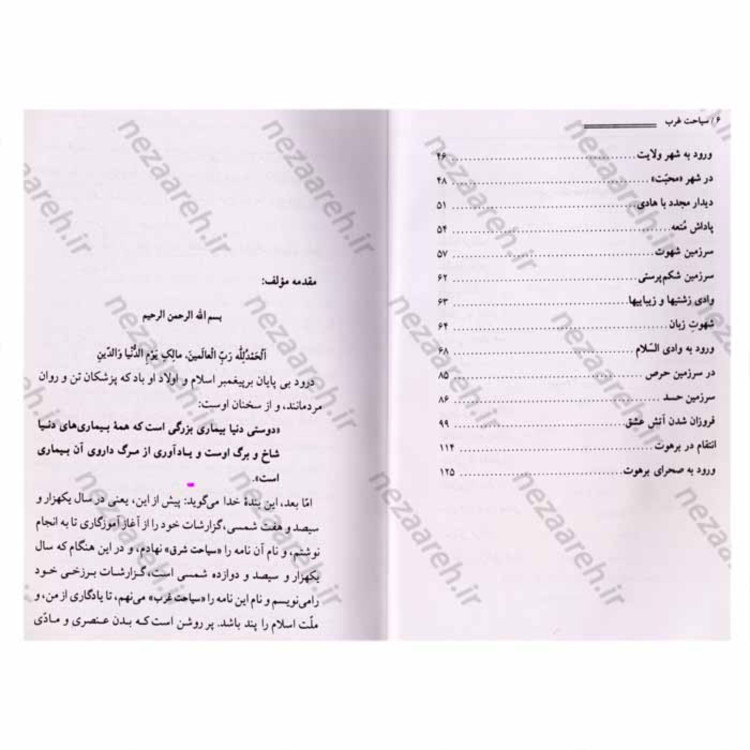 ۶ / سیاحت غرب
ورود به شهر ولایت ۴۶
در شهر «محبّت» ۴۸
دیدار مجدد با هادی ۵۱
پاداش مُتعه ۵۴
سرزمین شهوت ۵۷
سرزمین شکم‌پرستی ۶۲
وادی زشتیها و زیباییها ۶۳
شهوتِ زبان ۶۴
ورود به وادی السّلام ۶۸
در سرزمین حرص ۸۵
سرزمین حسد ۸۶
فروزان شدن آتش عشق ۹۹
انتقام در برهوت ۱۱۴
ورود به صحرای برهوت ۱۲۵
مقدمه مؤلف:
بسم الله الرحمن الرحیم
اَلْحَمْدُلِلّٰه رَبِّ الْعالَمین، مالِکِ یَوْمِ الدُّنْیا وَالدّینِ
درود بی پایان برپیغمبر اسلام و اولاد او باد که پزشکان تن و روان
مردمانند، و از سخنان اوست:
«دوستی دنیا بیماری بزرگی است که همهٔ بیماری‌های دنیا
شاخ و برگ اوست و یادآوری از مرگ داروی آن بیماری
است».
امّا بعد، این بندهٔ خدا می‌گوید: پیش از این، یعنی در سال یکهزار و
سیصد و هفت شمسی، گزارشات خود را از آغاز آموزگاری تا به انجام
نوشتم، و نام آن نامه را «سیاحت شرق» نهادم، و در این هنگام که سال
یکهزار و سیصد و دوازده شمسی است، گزارشات برزخی خود
را می‌نویسم و نام این نامه را «سیاحت غرب» می‌نهم، تا یادگاری از من، و
ملّت اسلام را پند باشد. پر روشن است که بدن عنصری و مادّی
nezaareh.ir
nezaareh.ir
nezaareh.ir
nezaareh.ir
nezaareh.ir
nezaareh.ir
nezaareh.ir
nezaareh.ir
nezaareh.ir